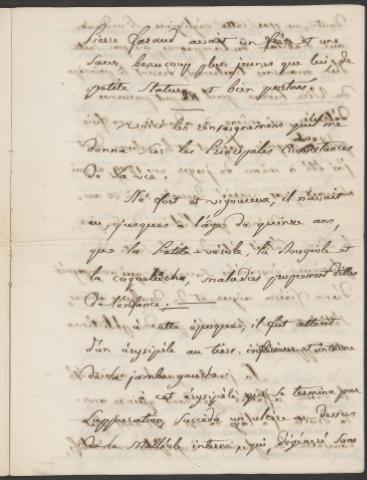 Pierre Faraud avait un frère et une
Sœur, beaucoup plus jeunes que lui, de
petite stature et bien portans.
Voici les renseignemens qu'il me
donna sur les Principales Circonstances
De sa vie :
Né fort et vigoureux, il n'avait
eu, jusques à l'âge de quinze ans,
que la Petite-vérole, la Rougeole et
la coqueluche, maladies proprement dites
De l'enfance.
à cette époque, il fut atteint
D'un érysipèle au tiers inférieur et interne
de la jambe gauche.
à cet érysipèle, qui se termina par
Suppuration, succéda un ulcère au dessus
De la Malléole interne, qui, dégénéré dans